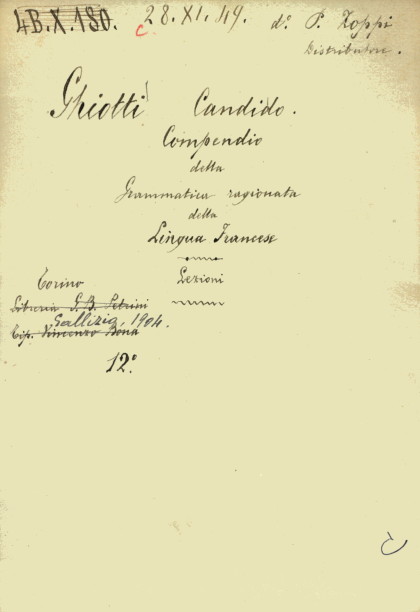 4B.X.180. c. 28.XI.49. d.º P. Zoppi
Distributore.
Ghiotti Candido.
Compendio
della
Grammatica ragionata
della
Lingua Francese
Lezioni
Torino
Libreria G.B. Petrini
Gallizio, 1904.
Tip. Vincenzo Bona
12º